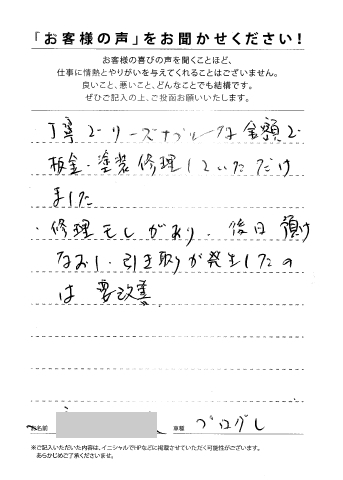 「お客様の声」をお聞かせください！
お客様の喜びの声を聞くことほど、
仕事に情熱とやりがいを与えてくれることはございません。
良いこと、悪いこと、どんなことでも結構です。
ぜひご記入の上、ご投函お願いいたします。
丁寧でリーズナブルな金額で
板金・塗装修理していただけ
ました
・修理モレがあり、後日預け
なおし・引き取りが発生したの
は要改善
お名前
車種 プログレ
※ご記入いただいた内容は、イニシャルでHPなどに掲載させていただく可能性がございます。
あらかじめご了承くださいませ。